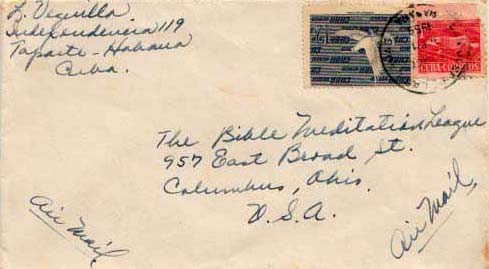 Z. Vequilla
Independencia 119
Tapaste - Habana
Cuba.
CUBA-CORREOS
The Bible Meditation League
957 East Broad St.
Columbus, Ohio.
U.S.A.
Air Mail,
Air Mail,